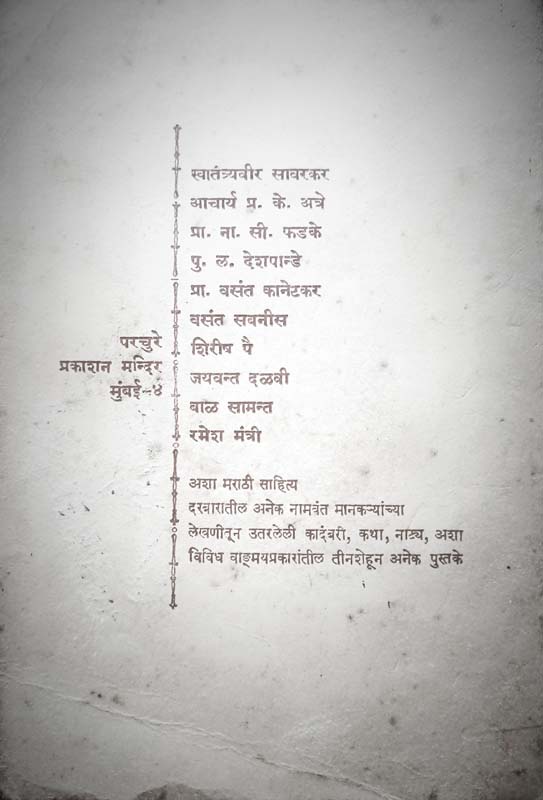 परचुरे
प्रकाशन मन्दिर
मुंबई-४
स्वातंत्र्यवीर सावरकर
आचार्य प्र. के. अत्रे
प्रा. ना. सी. फडके
पु. ल. देशपान्डे
प्रा. वसंत कानेटकर
वसंत सबनीस
शिरीष पै
जयवन्त दळवी
बाळ सामन्त
रमेश मंत्री
अशा मराठी साहित्य
दरबारातील अनेक नामवंत मानकऱ्यांच्या
लेखणीतून उतरलेली कादंबरी, कथा, नाट्य, अशा
विविध वाङ्मयप्रकारांतील तीनशेहून अनेक पुस्तके